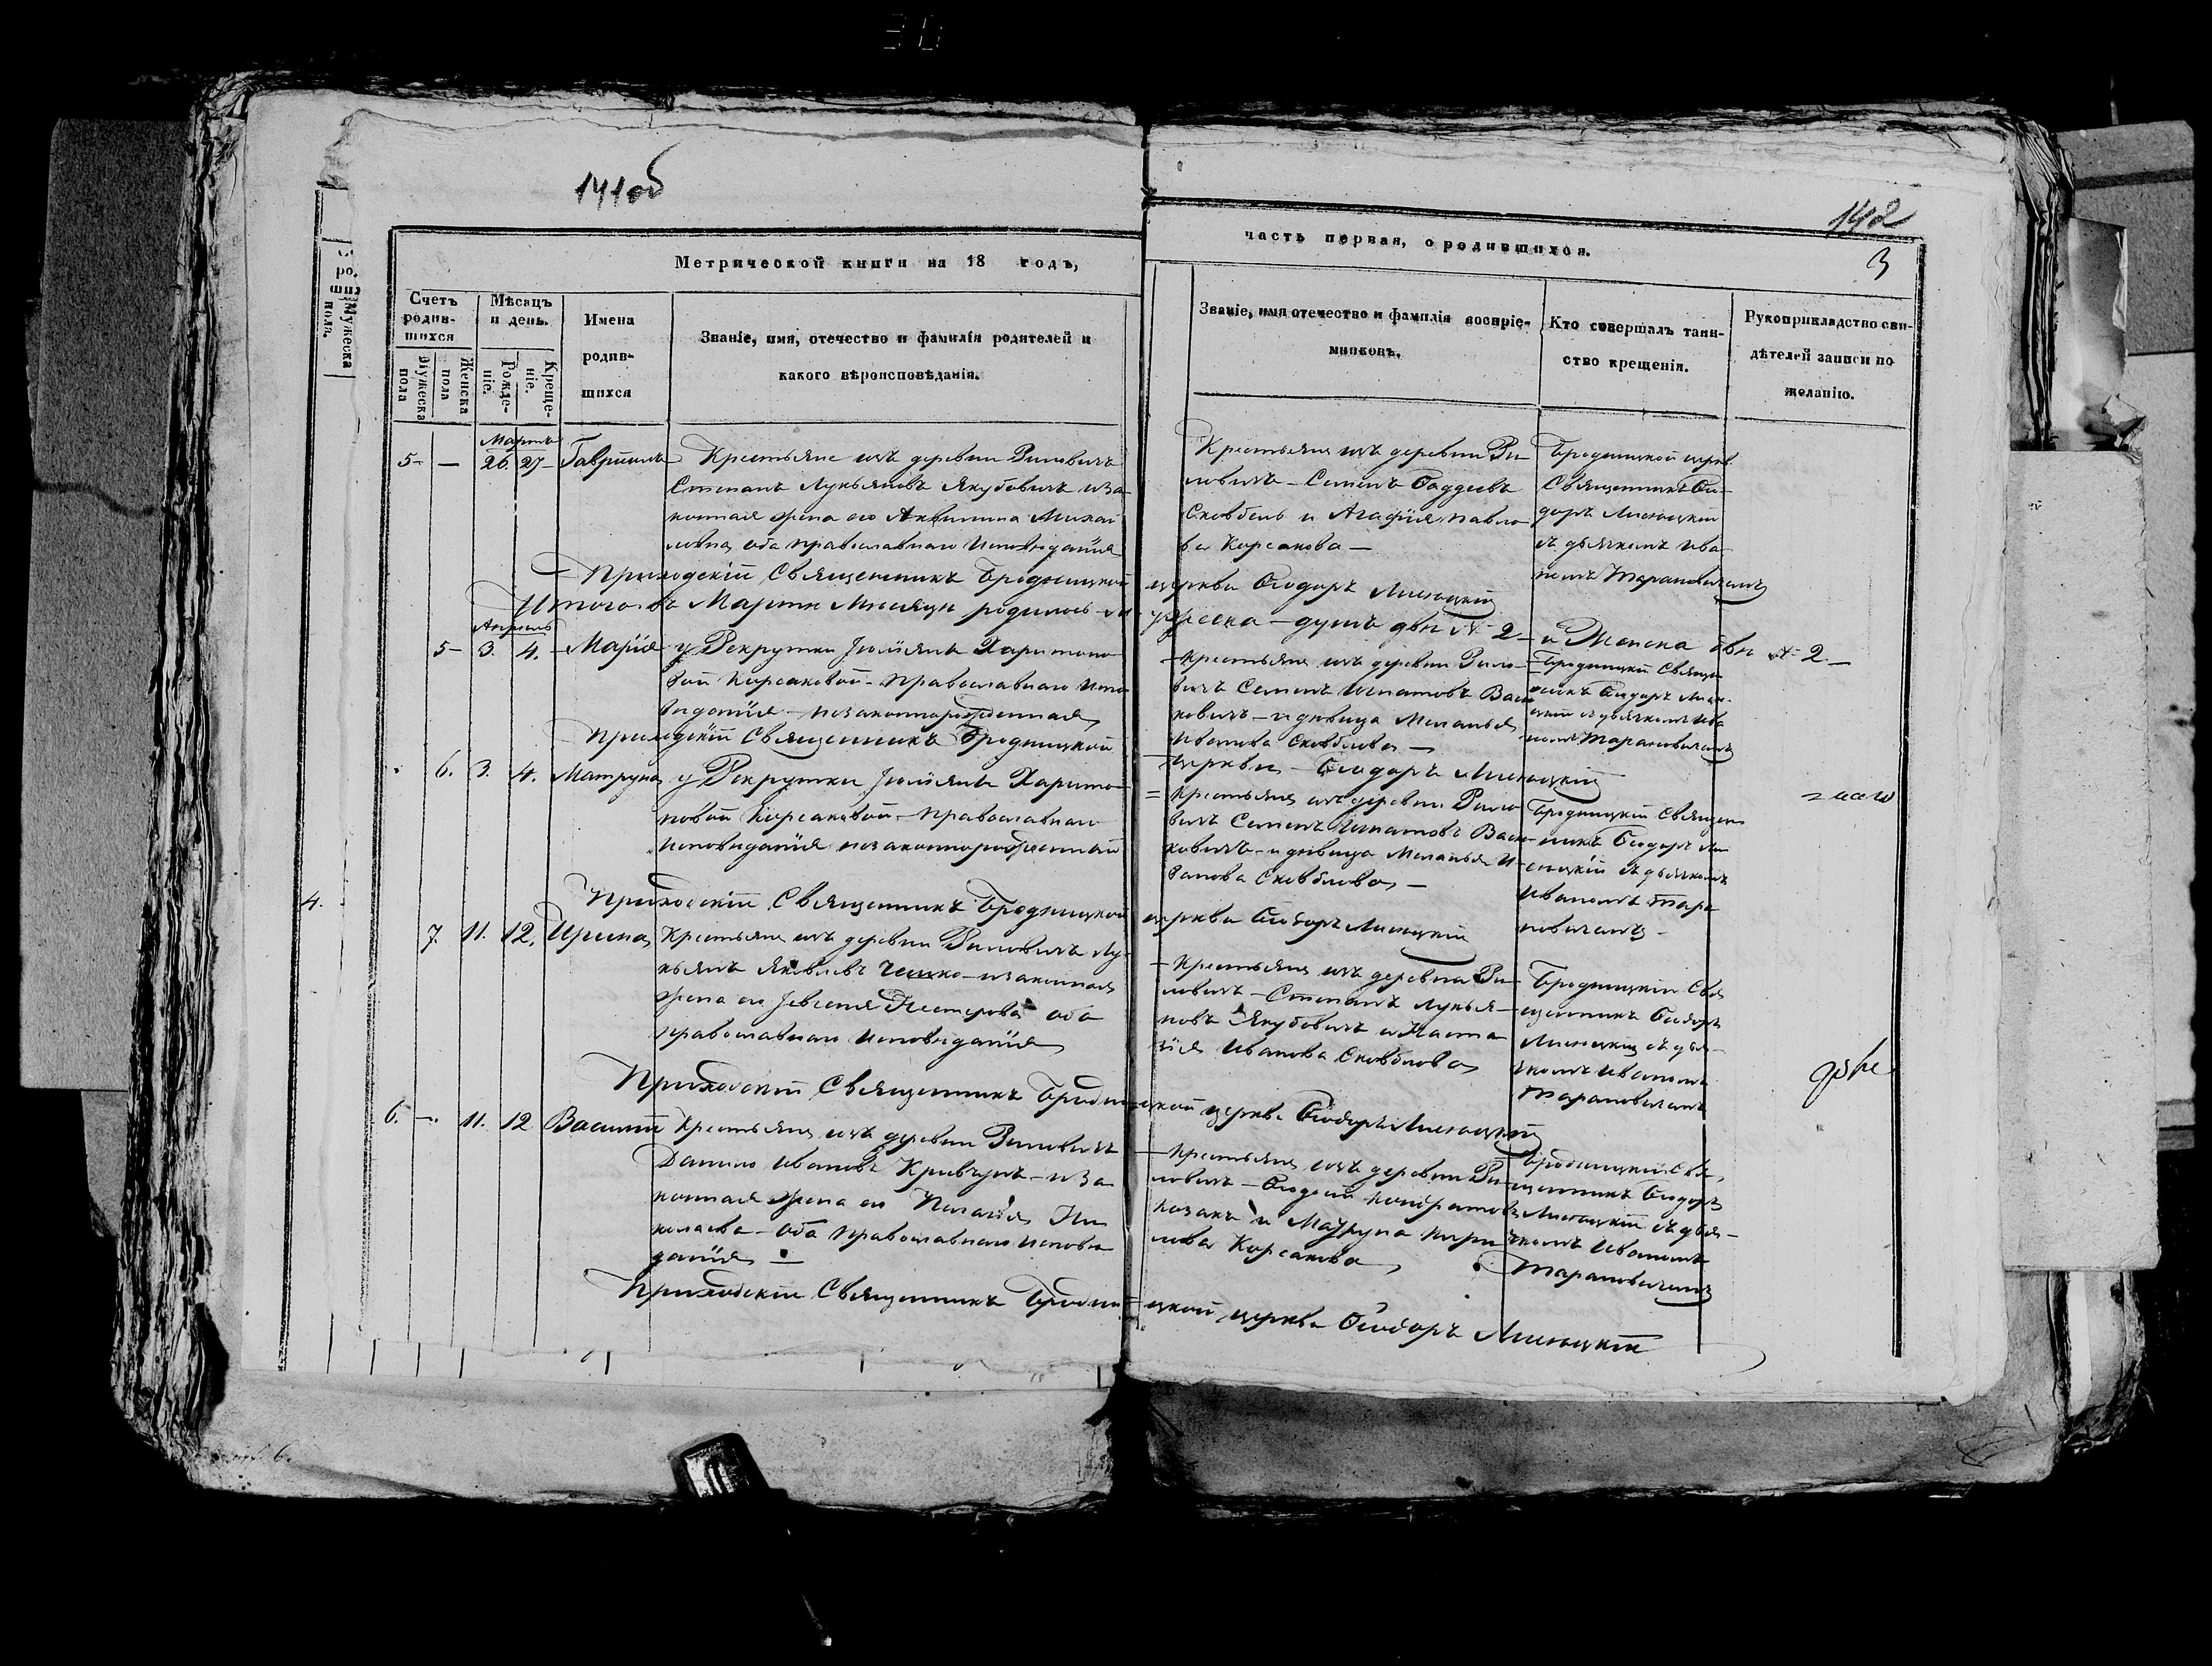 141об
142
3
Метрической книги на 18 годъ,
часть первая, о родившихся.
Счетъ родив-
шихся
Мужеска пола
Женска пола
Мѣсацъ и день.
Рожде-
ніе.
Креще-
ніе.
Имена
родив-
шихся
Званіе, имя, отечество и фамилія родителей и
какого вѣроисповѣданія.
Званіе, имя отечество и фамилія воспріе-
мниковъ.
Кто совершалъ таин-
ство крещенія.
Рукоприкладство сви-
дѣтелей записи по
желанію.
Мартъ
5 – 26 27 Гавріилъ
Крестьяне изъ деревни Виловичъ
Степанъ Лукьяновъ Якубовичъ иза-
конная жена его Акилина Михай
ловна, оба православнаго Исповѣданія
Крестьяне изъ деревни Ви-
ловичъ – Семенъ Фаддеевъ
Сковбель и Агафія Павло-
ва Корсакова –
Бродницкой церкв.
Священникъ Ѳео-
доръ Лисецкій
съ дьячкомъ Ива-
номъ Тарановичемъ
Приходскій Священникъ Бродницкой церкви Ѳеодоръ Лисецкій
Итого въ Мартѣ Мѣсяцѣ родилось – мужеска – душъ двѣ № 2 – и Женска двѣ № 2. –
Апрель
5 – 3. 4. – Марія
у Рекрутки Іюліяны Харитоно-
вой Корсаковой – православнаго Испо-
вѣданія – незаконнорожденная
Крестьяне изъ деревни Вило-
вичъ Семенъ Игнатовъ Вась
ковичъ – и дѣвица Меланья
Иванова Сковблова –
Бродницкій Священ-
никъ Ѳеодоръ Лисе-
цкій съ дьячкомъ Ива
номъ Тарановичемъ
Приходскій Священникъ Бродницкой церкви – Ѳеодоръ Лисецкій
6. 3. 4. Матруна
у Рекрутки Іюліяны Харито-
новой Корсаковой – Православнаго
Исповѣданія незаконнорожденный
Крестьяне изъ деревни Вило
вичъ Семенъ Игнатовъ Вась-
ковичъ – и дѣвица Меланья И-
ванова Сковблова –
Бродницкій Священ-
никъ Ѳеодоръ Ли-
сецкій съ дьячкомъ
Иваномъ Тара
новичемъ –
4.
Приходскій Священникъ Бродницкой церкви Ѳеодоръ Лисецкій
7. 11. 12. Ирина
Крестьяне изъ деревни Виловичъ Лу-
кьянъ Яковлевъ – изаконная
жена его Нестерова оба
православнаго Исповѣданія
Крестьяне изъ деревни Ви-
ловичъ – Степанъ Лукья-
новъ Якубовичъ и Наста
зія Иванова Сковблова
Бродницкій Свя
щенникъ Ѳеодоръ
Лисецкій съ дья-
чкомъ Иваномъ
Тарановичемъ
Приходскій Священникъ Бродницкой церкви Ѳеодоръ Лисецкій
6. –. 11. 12 Василій
Крестьяне изъ деревни Виловичъ
Данило Ивановъ Кривчукъ – иза
конная жена его Пелагія Ни
колаева – Оба Православнаго Исповѣ
данія –
Крестьяне изъ деревни Ви-
ловичъ – Кондратовъ
Козакъ и Матруна Кири
лова Корсакова
Бродницкій Свя
щенникъ Ѳеодоръ
Лисецкій съ дья-
чкомъ Иваномъ
Тарановичемъ
Приходскій Священникъ Бродни-цкой церкви Ѳеодоръ Лисецкій